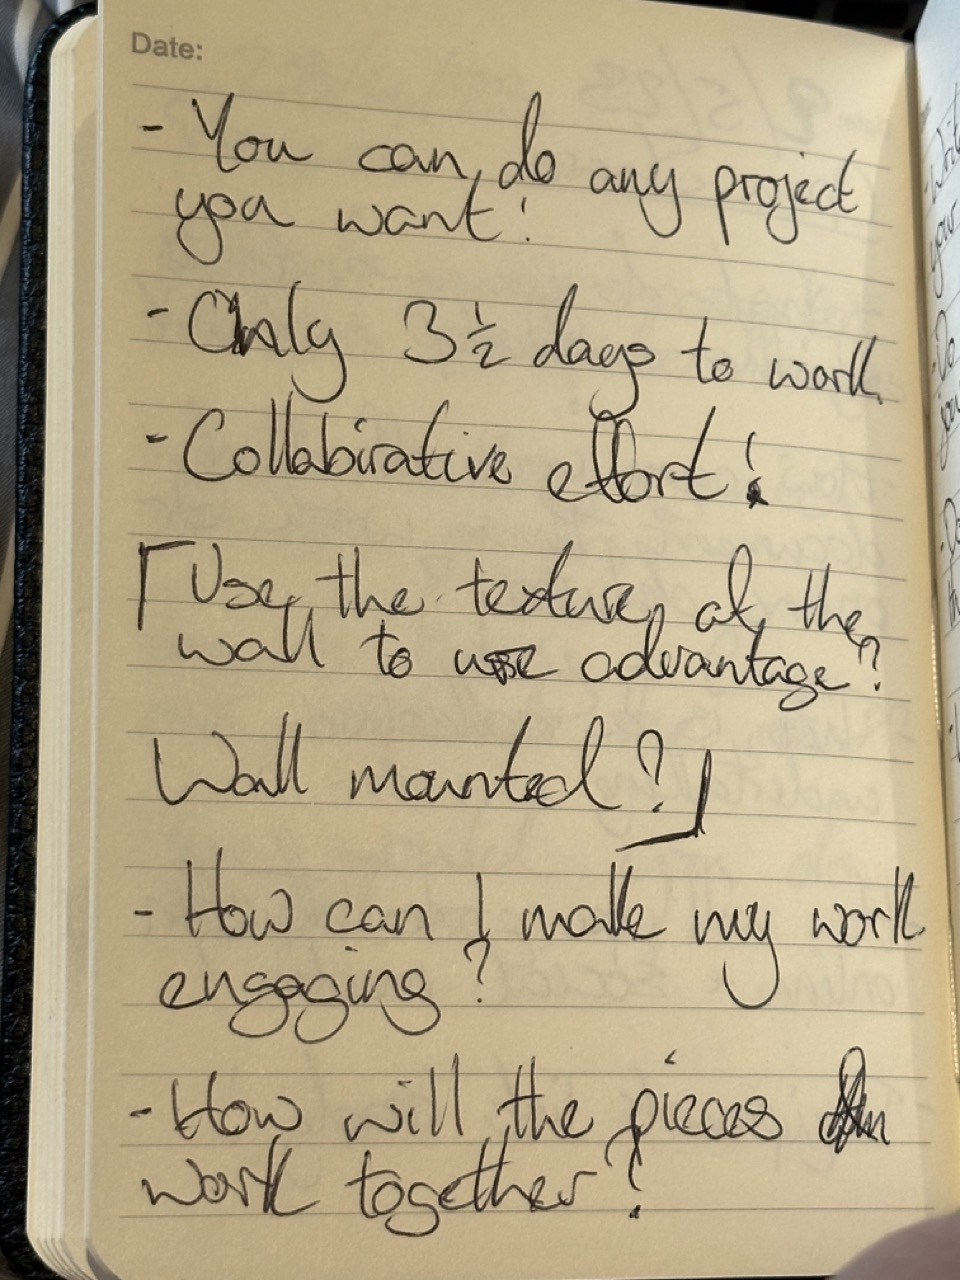 Date:
- You can do any project
you want!
- Only 3½ days to work
- Collabirative effort!
Use the texture of the
wall to use advantage?
Wall mounted?
- How can I make my work
engaging?
- How will the pieces
work together?